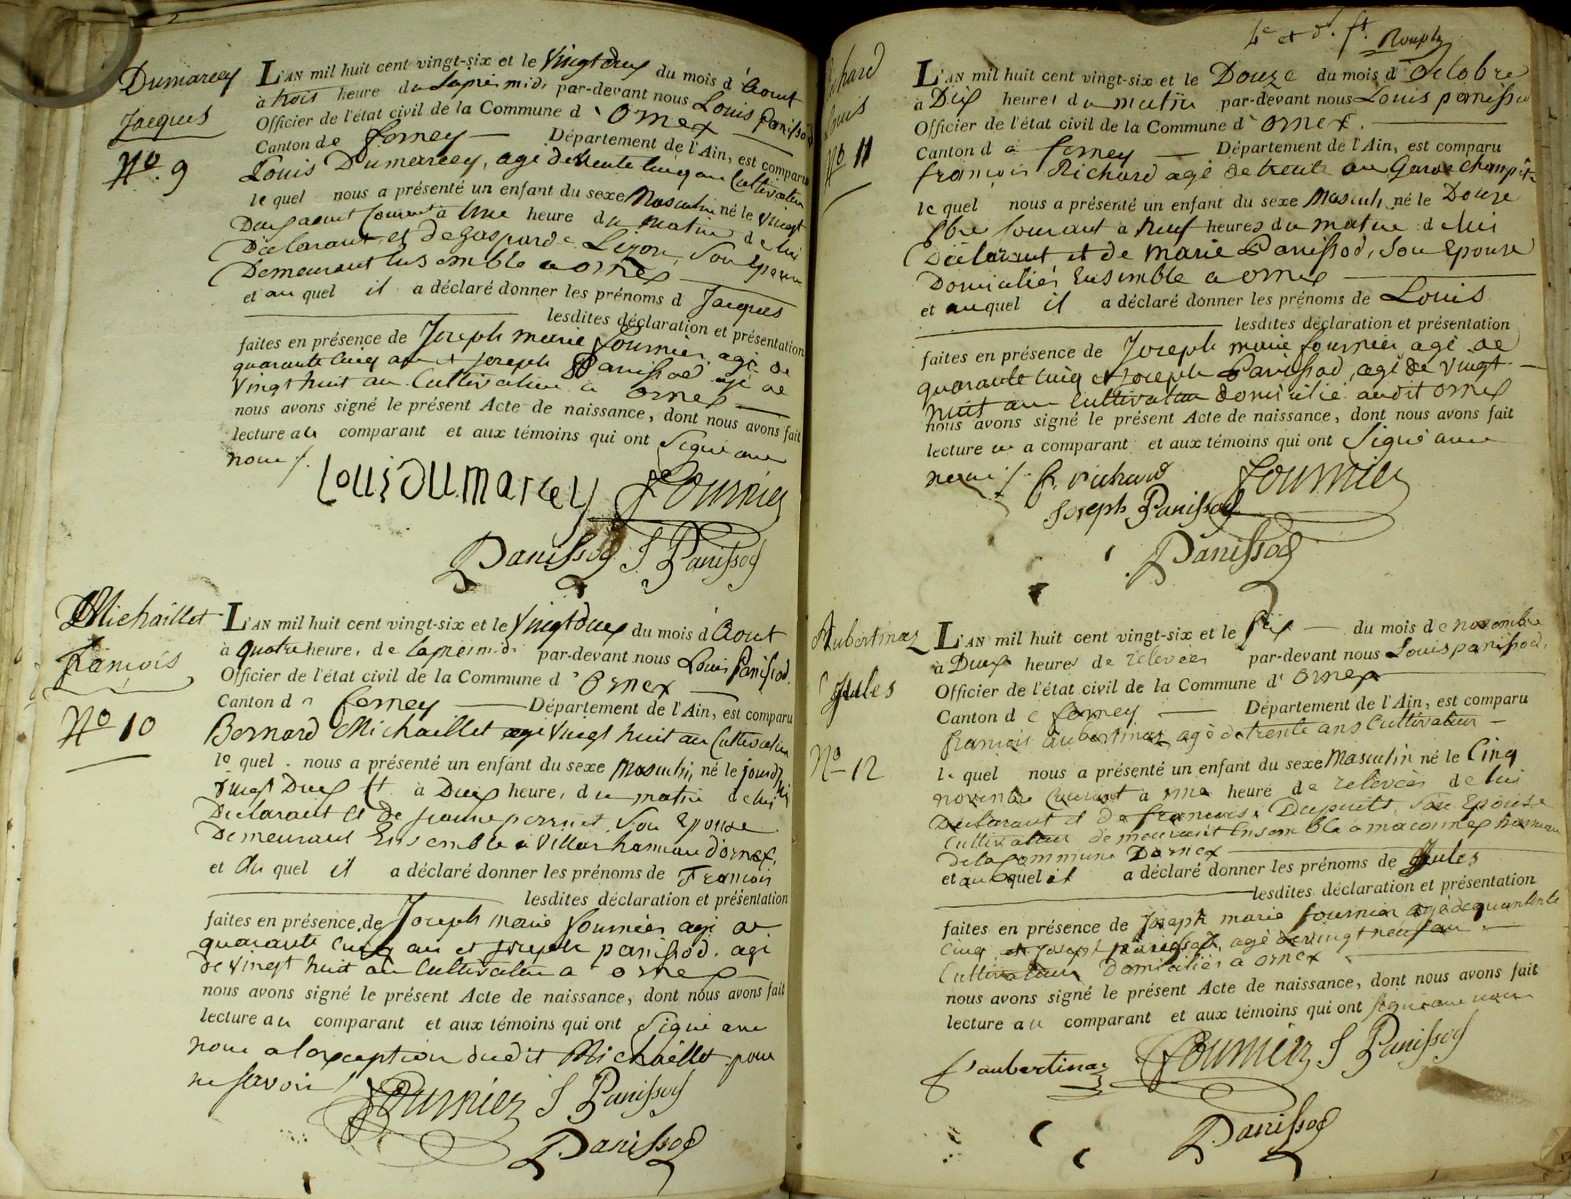 Dumarcey
Jacques
No. 9
L'AN mil huit cent vingt-six et le Vingtdeux du mois d'Aout
à trois heure de Laprès midi par-devant nous Louis Panissod
Officier de l'état civil de la Commune d'Ornex
Canton de ferney Département de l'Ain, est comparu
Louis Dumarcey, agé de trente cinq an Cultivateur
lequel nous a présenté un enfant du sexe Masculin né le Vingt
Deux aout Courant à Une heure du matin de lui
Déclarant et de Gasparde Lizon, Son Epouse
Demeurant Ensemble a ornex
et auquel il a déclaré donner les prénoms d Jacques
lesdites déclaration et présentation
faites en présence de Joseph marie fournier agé de
quarante cinq an et Joseph Panissod agé de
Vingt huit an Cultivateur a ornex
nous avons signé le présent Acte de naissance, dont nous avons fait
lecture au comparant et aux témoins qui ont Signé avec
nous /.
Louis DU.marcey Fournier
Panissod J Panissod
Michaillet
françois
No 10
L'AN mil huit cent vingt-six et le Vingtdeux du mois d'Aout
à quatre heure, de laprèsmidi par-devant nous Louis Panissod.
Officier de l'état civil de la Commune d'Ornex
Canton d ferney Département de l'Ain, est comparu
Bernard Michaillet agé Vingt huit an Cultivateur
lequel nous a présenté un enfant du sexe Masculin né le jourdhui
Vingt Deux à Deux heure, du matin de lui
Déclarant et de jeanne perret, Son Epouse
Demeurant Ensemble à Villar hameau d'ornex,
et du quel il a déclaré donner les prénoms de François
lesdites déclaration et présentation
faites en présence de Joseph marie fournier agé de
quarante cinq an et joseph panissod. agé
de Vingt huit an Cultivateur a ornex
nous avons signé le présent Acte de naissance, dont nous avons fait
lecture au comparant et aux témoins qui ont Signé avec
nous a lexception dudit Michaillet pour
ne savoir
Fournier J Panissod
Panissod
Richard
Louis
No 11
L'AN mil huit cent vingt-six et le Douze du mois d'Octobre
à Dix heures du matin par-devant nous Louis panissod
Officier de l'état civil de la Commune d'ornex.
Canton d ferney Département de l'Ain, est comparu
françois Richard agé de trente an Garde champêtre
lequel nous a présenté un enfant du sexe Masculin né le Douze
8bre Courant à Neuf heures du matin de lui
Déclarant et de Marie Panissod, Son Epouse
Domiciliés Ensemble a ornex
et auquel il a déclaré donner les prénoms de Louis
lesdites déclaration et présentation
faites en présence de Joseph marie fournier agé de
quarante cinq et joseph Panissod, agé de vingt
huit an Cultivateur domicilié audit ornex
nous avons signé le présent Acte de naissance, dont nous avons fait
lecture au comparant et aux témoins qui ont Signé avec
nous /. f. richard Fournier
Joseph Panissod
Panissod
Aubertinaz
Jules
No 12
L'AN mil huit cent vingt-six et le Six du mois de novembre
à Deux heures de relevées par-devant nous Louis panissod,
Officier de l'état civil de la Commune d'Ornex
Canton de ferney Département de l'Ain, est comparu
francois Aubertinaz agé de trente ans Cultivateur
lequel nous a présenté un enfant du sexe Masculin né le Cinq
novembre Courant à une heure de relevées de lui
Déclarant et de francoise Dupuits, Son Epouse
Cultivateur demeurant Ensemble a maconnex hameau
de la Commune Dornex
et auquel il a déclaré donner les prénoms de Jules
lesdites déclaration et présentation
faites en présence de Joseph marie fournier agé de quarente
Cinq et joseph panissod, agé de vingt neuf an
Cultivateur Domiciliés a ornex
nous avons signé le présent Acte de naissance, dont nous avons fait
lecture au comparant et aux témoins qui ont signé avec nous
f aubertinaz Fournier J Panissod
Panissod